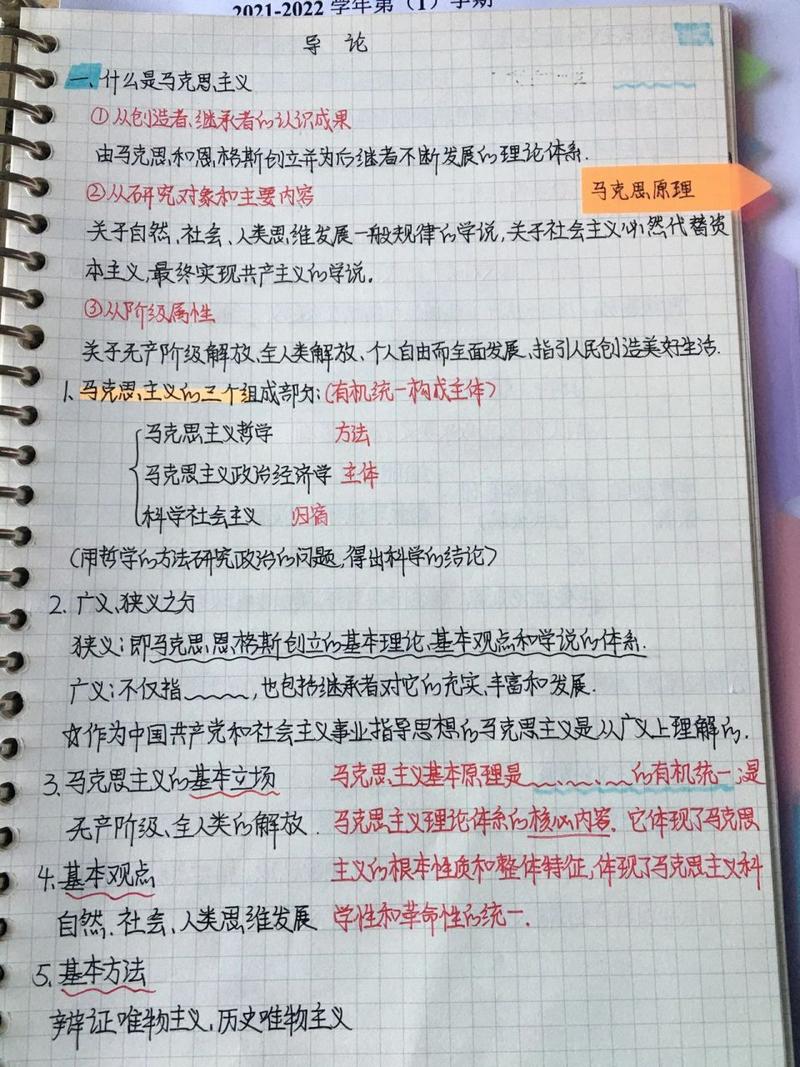 2021-2022 学年第（1）学期
导 论
一、什么是马克思主义
①从创造者、继承者的认识成果
由马克思和恩格斯创立并为后继者不断发展的理论体系.
②从研究对象和主要内容
马克思原理
关于自然、社会、人类思维发展一般规律的学说,关于社会主义必然代替资
本主义,最终实现共产主义的学说。
③从阶级属性
关于无产阶级解放、全人类解放、个人自由而全面发展、指引人民创造美好生活.
1、马克思主义的三个组成部分:(有机统一构成主体)
马克思主义哲学 方法
马克思主义政治经济学 主体
科学社会主义 归宿
(用哲学的方法研究政治的问题,得出科学的结论)
2. 广义、狭义之分
狭义:即马克思、恩格斯创立的基本理论、基本观点和学说的体系.
广义:不仅指﹏﹏﹏,也包括继承者对它的充实、丰富和发展.
☆作为中国共产党和社会主义事业指导思想的马克思主义是从广义上理解的.
3、马克思主义的基本立场 马克思主义基本原理是﹏、﹏、﹏的有机统一;是
无产阶级、全人类的解放. 马克思主义理论体系的核心内容. 它体现了马克思
4、基本观点 主义的根本性质和整体特征,体现了马克思主义科
自然、社会、人类思维发展 学性和革命性的统一.
5、基本方法
辩证唯物主义,历史唯物主义